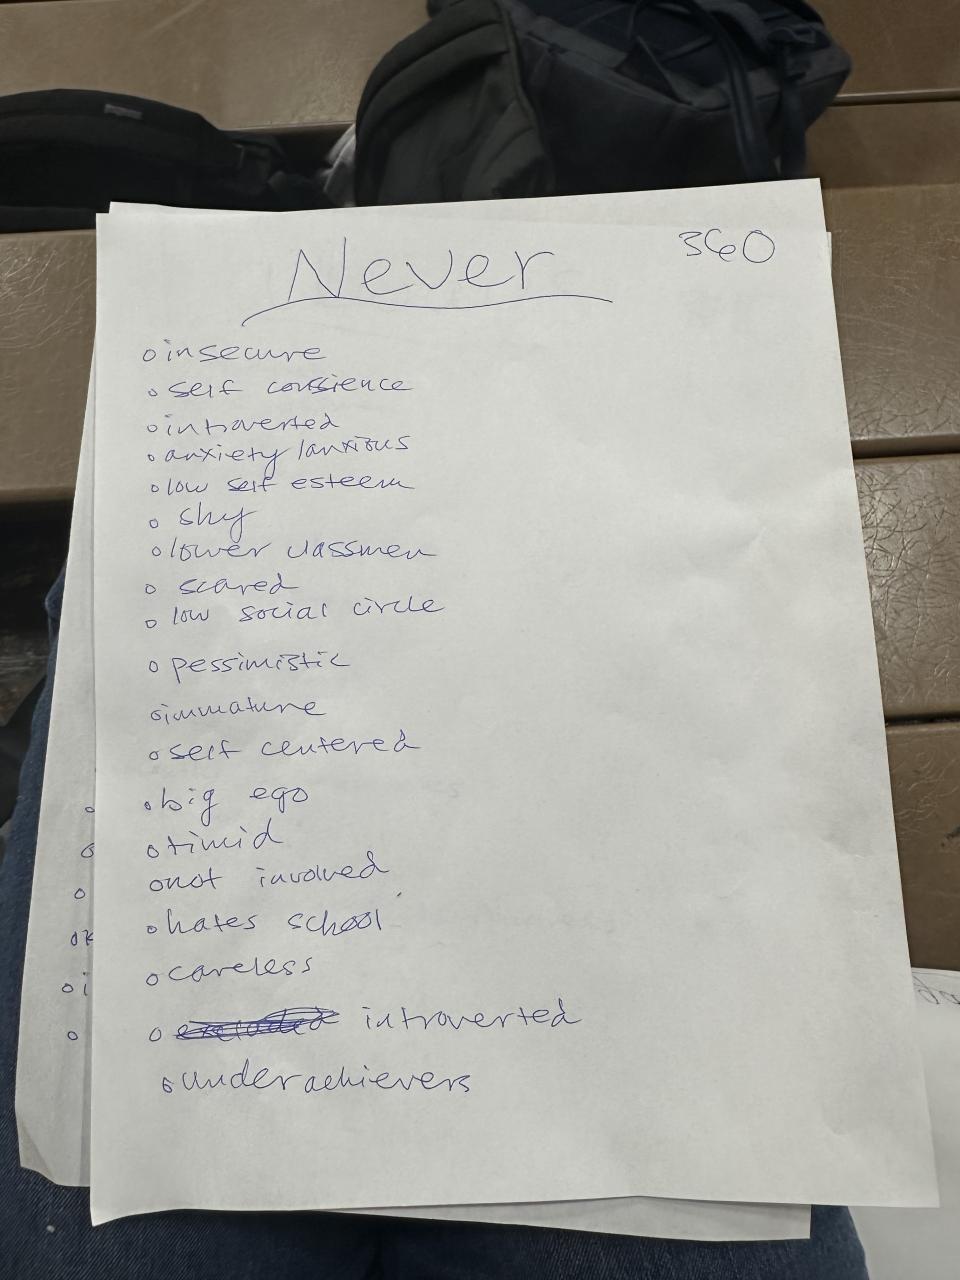 Never
360
insecure
self consience
introverted
anxiety/anxious
low self esteem
shy
lower classmen
scared
low social circle
pessimistic
immature
self centered
big ego
timid
not involved
hates school
careless
introverted
underachievers